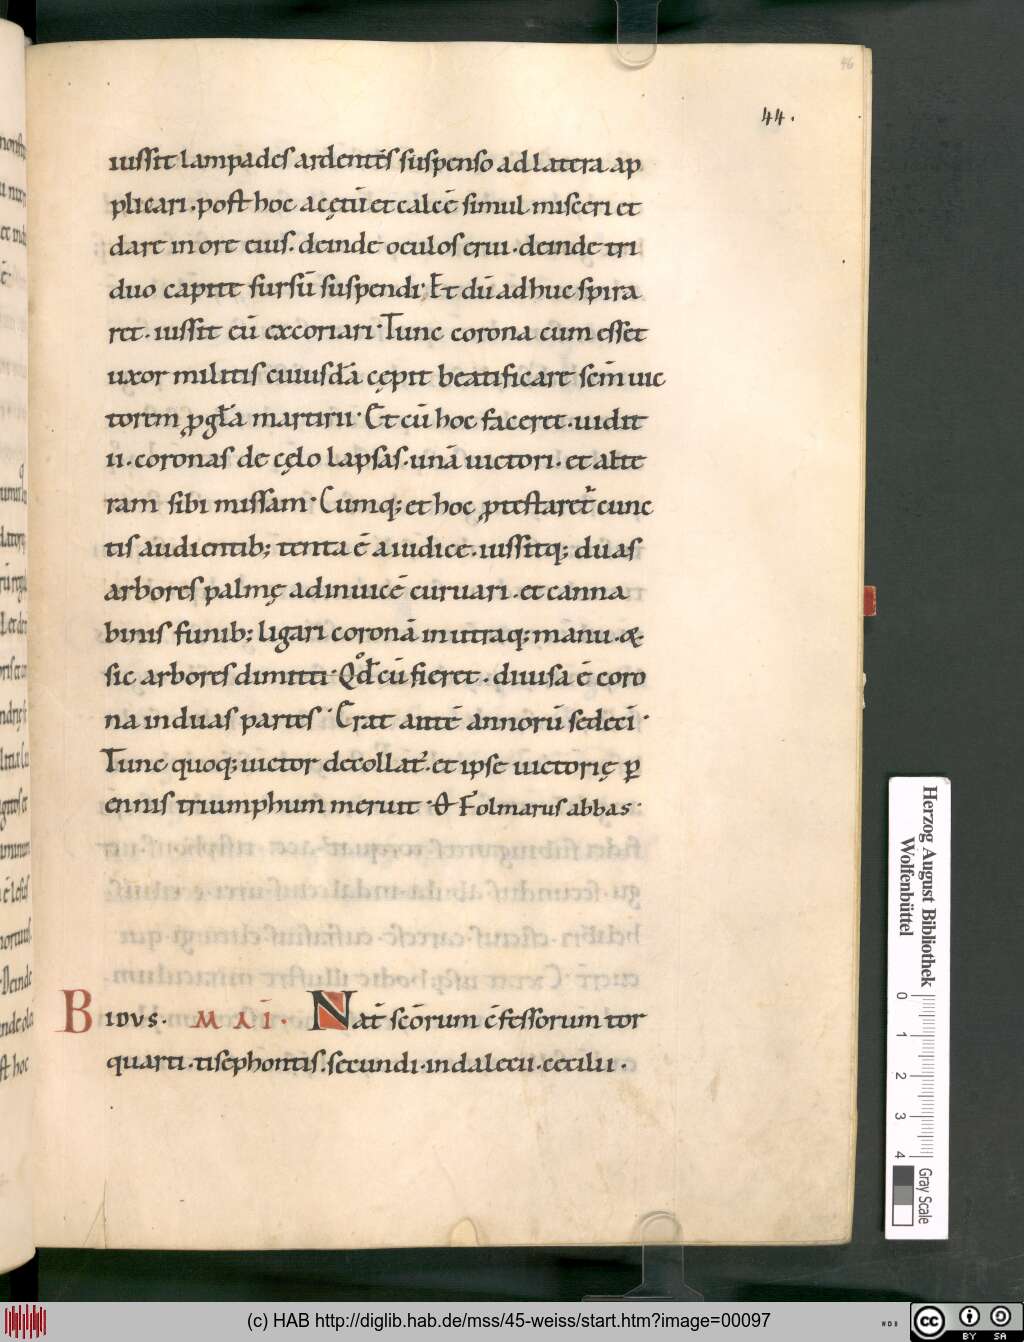 46
44.
iussit lampades ardentes suspenso ad latera ap
plicari. post hoc acętū et calcē simul misceri et
dare in ore eius. deinde oculos erui. deinde tri
duo capite sursū suspendi. Et dū adhuc spira
ret. iussit eū excoriari. Tunc corona cum esset
uxor militis cuiusdā cępit beatificare scm̄ uic
torem ꝓ gl̄a martirii. Et cū hoc faceret. uidit
ii. coronas de cęlo lapsas. unā uictori. et alte
ram sibi missam. Cumq; et hoc ꝓtestaret᷑ cunc
tis audientib; tenta ē a iudice. iussitq; duas
arbores palmę adinuicē curuari. et canna
binis funib; ligari coronā in utraq; manu. &
sic arbores dimitti. Qd̄ cū fieret. diuisa ē coro
na in duas partes. Erat autē annorū sedeci.
Tunc quoq; uictor decollat᷑. et ipse uictorię ꝑ
ennis triumphum meruit. Folmarus abbas.
B IDVS. MAI. Nat̄ scōrum c̄fessorum tor
quarti. tisephontis. secundi. indalecii. cecilii.
Herzog August Bibliothek
Wolfenbüttel
0 1 2 3 4
Gray Scale
(c) HAB http://diglib.hab.de/mss/45-weiss/start.htm?image=00097
cc BY SA